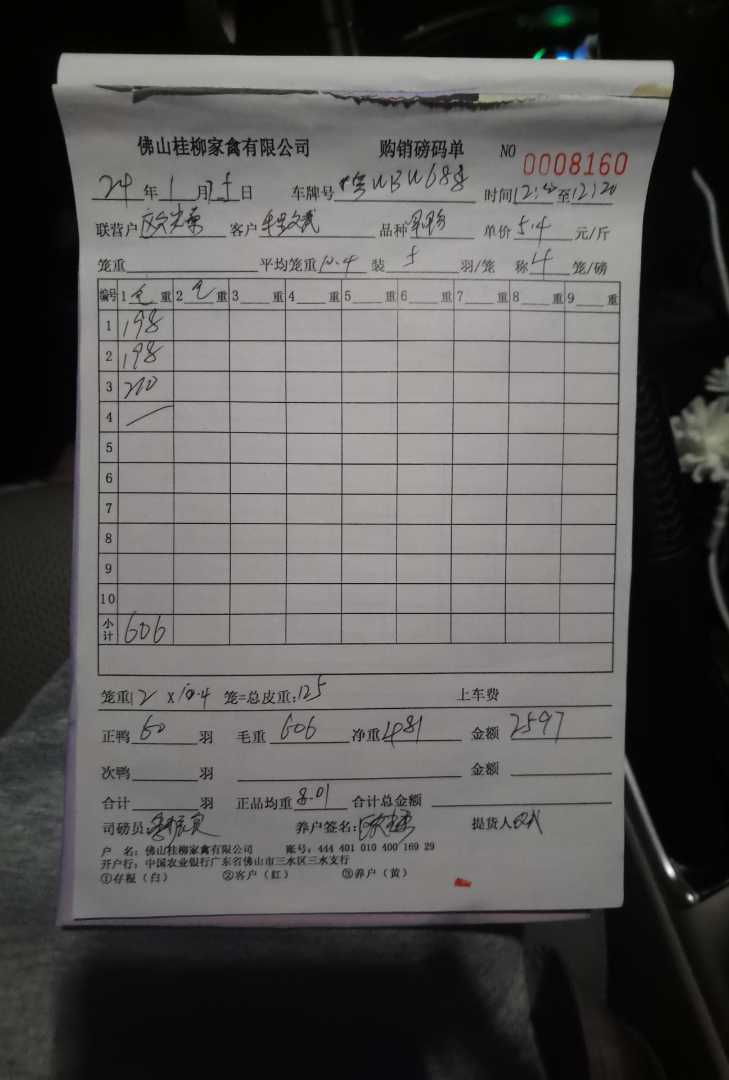 佛山桂柳家禽有限公司 购销磅码单 NO 0008160
24年1月 日 车牌号 时间12: 至12:20
联营户 客户 品种 单价5.4元/斤
笼重 平均笼重10.4 装5羽/笼 称4笼/磅
编号 1毛重 2毛重 3 重 4 重 5 重 6 重 7 重 8 重 9 重
1 198
2 198
3 210
4
5
6
7
8
9
10
小计 606
笼重12×10.4笼=总皮重:125 上车费
正鸭60羽 毛重606 净重481 金额2597
次鸭 羽 金额
合计 羽 正品均重8.01 合计总金额
司磅员: 养户签名: 提货人
户 名:佛山桂柳家禽有限公司 账号:444 401 010 400 169 29
开户行:中国农业银行广东省佛山市三水区三水支行
①存根(白) ②客户(红) ③养户(黄)